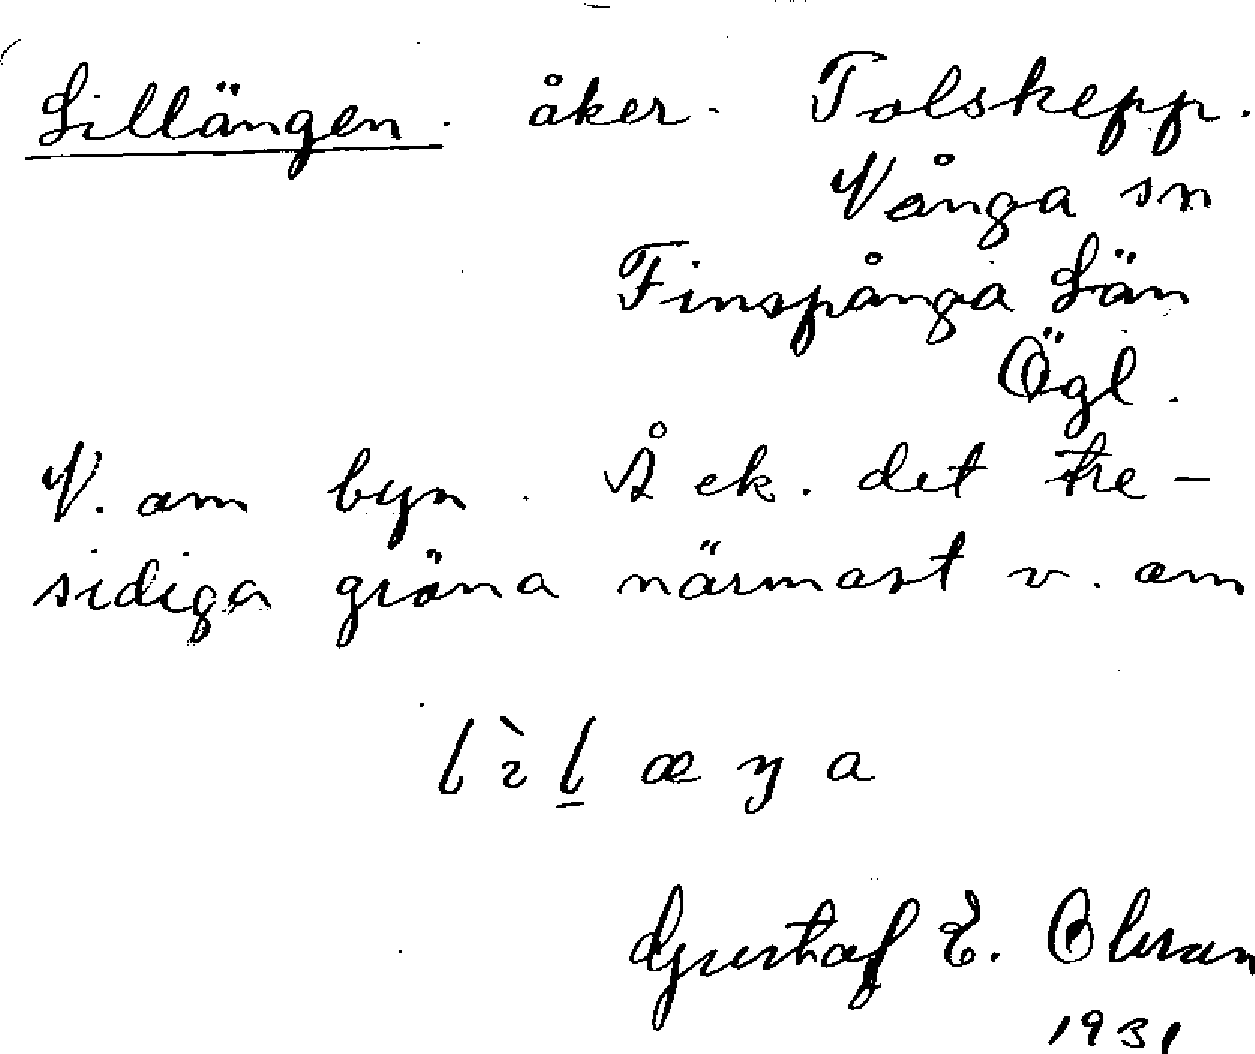 Lillängen. åker. Tolskepp.
Vånga sn
Finspånga Län
Ögl.
V. om byn. Å ek. det tre-
sidiga gröna närmast v. om
lìl̲æŋa
Gustaf E. Olsson
1931